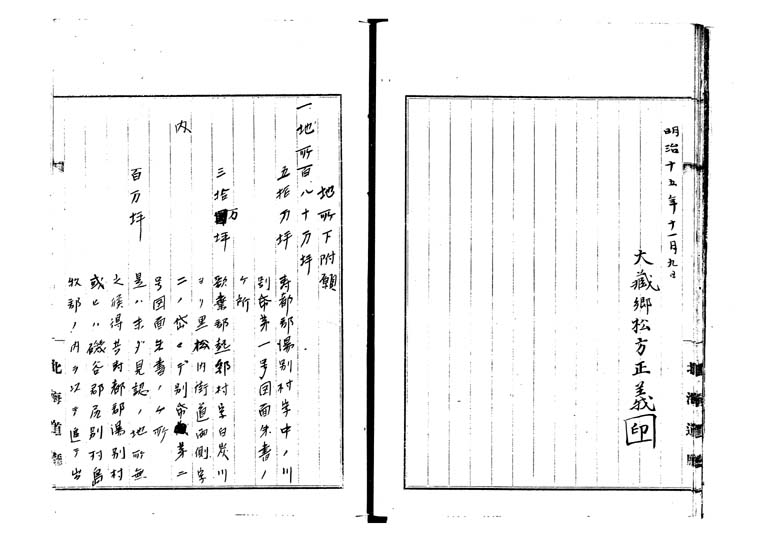 明治十五年十一月九日
大藏郷松方正義 印
北海道廳
地所下附願
一地所百八十万坪
内
五拾万坪
壽都郡湯別村字中ノ川
別帋第一号図面朱書ノ
ヶ所
三拾万坪
歌棄郡熱郛村字白炭川
ヨリ黒松内街道両側字
二ノ岱マデ別帋第二
号図面朱書ノヶ所
百万坪
是ハ未ダ見認ノ地所無
之候得共壽都郡湯別村
或ヒハ磯谷郡尻別村島
牧郡ノ内ヲ以テ追テ出
北海道廳